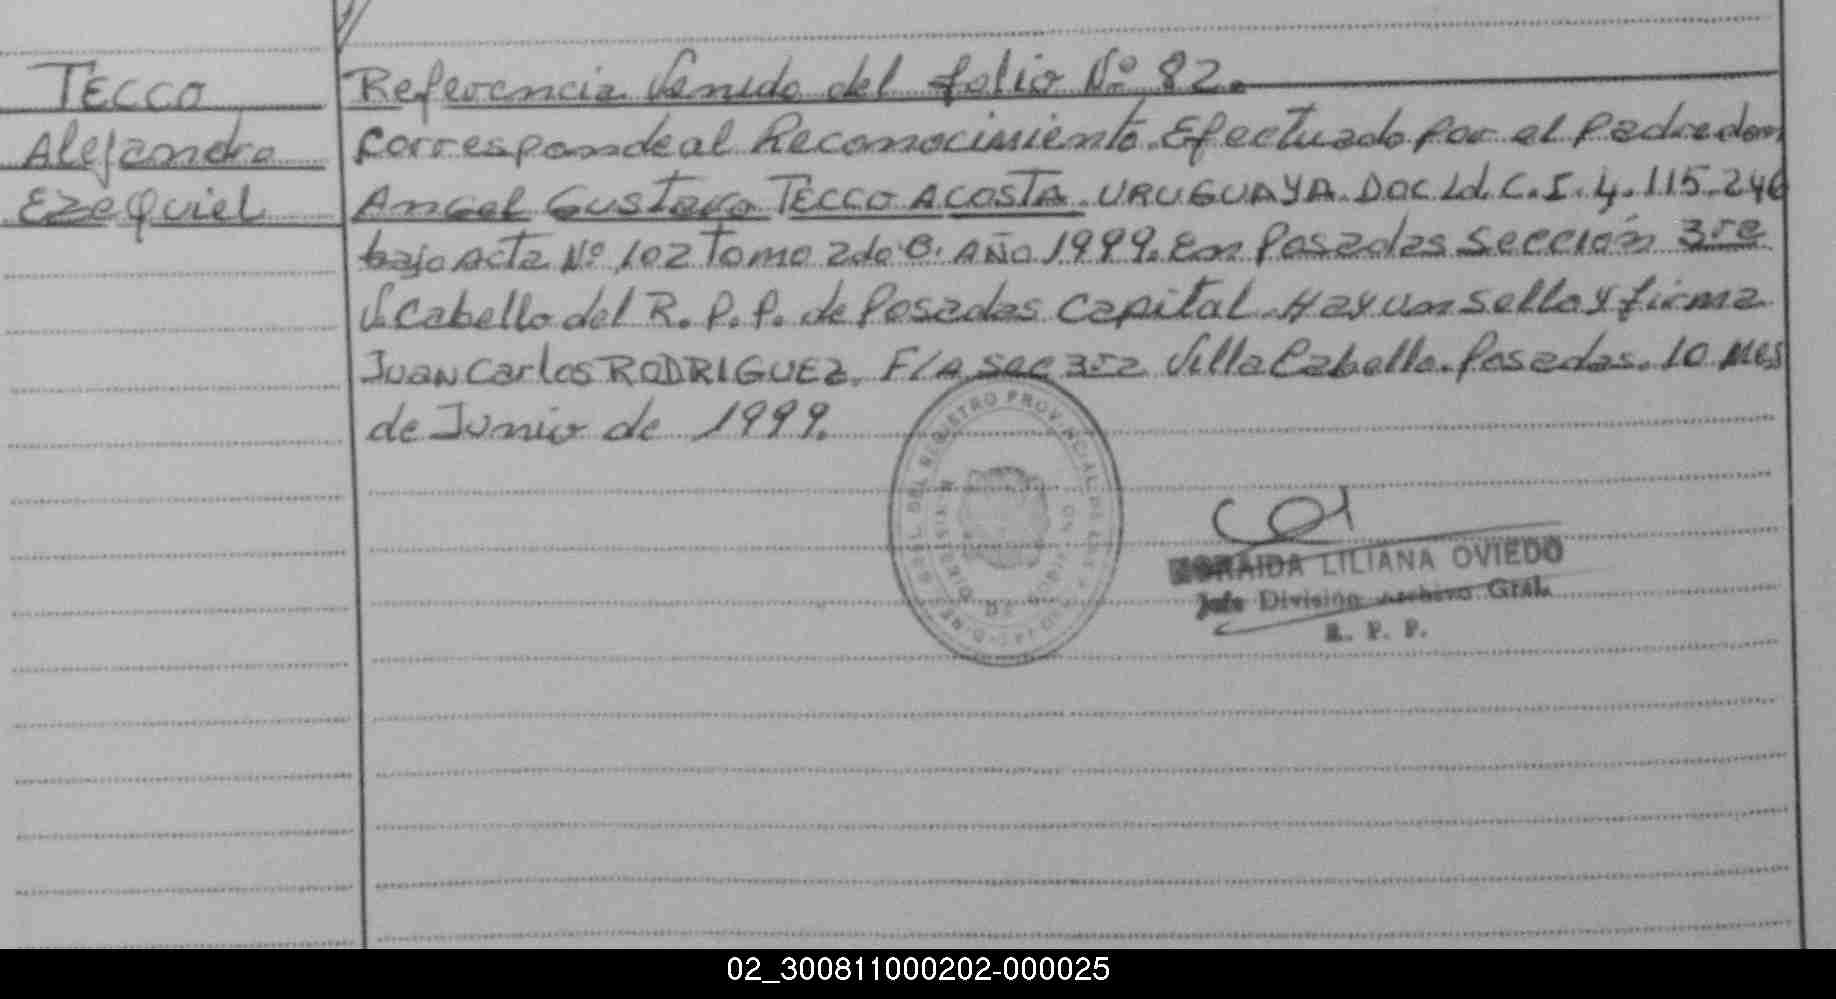 TECCO
Alejandro
Ezequiel
Referencia Venido del folio Nº 82.
Corresponde al Reconocimiento Efectuado por el padre don
Angel Gustavo TECCO ACOSTA. URUGUAYA. Doc Id. C.I. 4.115.246
bajo Acta Nº 102 Tomo 2do B. AÑO 1999. En Posadas Sección 3ra
V. Cabello del R. P. P. de Posadas Capital. Hay un sello y firma
Juan Carlos RODRIGUEZ. F/A Sec 3ra Villa Cabello. Posadas. 10 Mes
de Junio de 1999.
REGISTRO PROVINCIAL DE LAS
LILIANA OVIEDO
Jefe División Archivo Gral.
R. P. P.
02_300811000202-000025